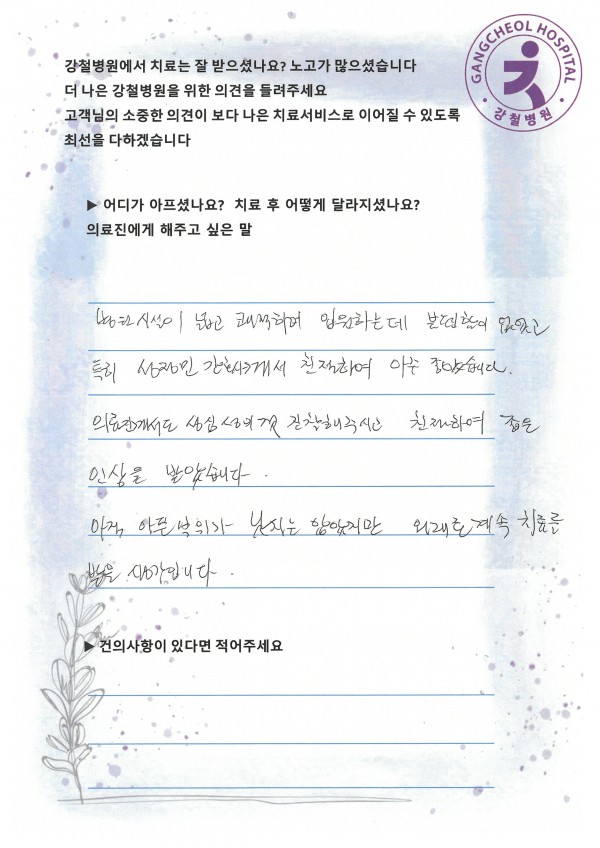 GANGCHEOL HOSPITAL
강철병원
강철병원에서 치료는 잘 받으셨나요? 노고가 많으셨습니다
더 나은 강철병원을 위한 의견을 들려주세요
고객님의 소중한 의견이 보다 나은 치료서비스로 이어질 수 있도록
최선을 다하겠습니다
▶ 어디가 아프셨나요? 치료 후 어떻게 달라지셨나요?
의료진에게 해주고 싶은 말
병원시설이 넓고 쾌적하며 입원하는데 불편함이 없었고
특히 간호사께서 친절하여 아주 좋았습니다.
의료진께서도 성심 성의껏 진찰해주시고 친절하여 좋은
인상을 받았습니다.
아직 아픈부위가 낫지는 않았지만 외래로 계속 치료를
받을 생각입니다.
▶ 건의사항이 있다면 적어주세요